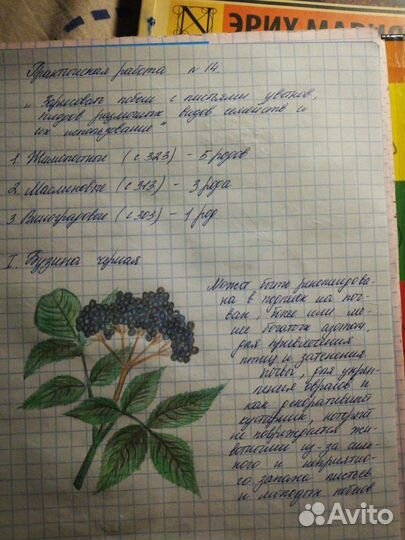 ЭРИХ МАРИ
Практическая работа № 14.
„Зарисовать побеги с листьями, цветов,
плодов различных видов семейств и
их использование"
1. Жимолостные (с 323) – 5 родов
2. Маслиновые (с 313) – 3 рода
3 Виноградовые (с 303) – 1 род
I. Бузина черная
Может быть рекомендова-
на в подлесок на поч-
вах, более или ме-
нее богатых азотом,
для привлечения
птиц и затенения
почвы, для укреп-
ления оврагов и
как декоративный
кустарник, который
не повреждается жи-
вотными из-за силь-
ного и неприятно-
го запаха листьев
и молодых побегов
Avito